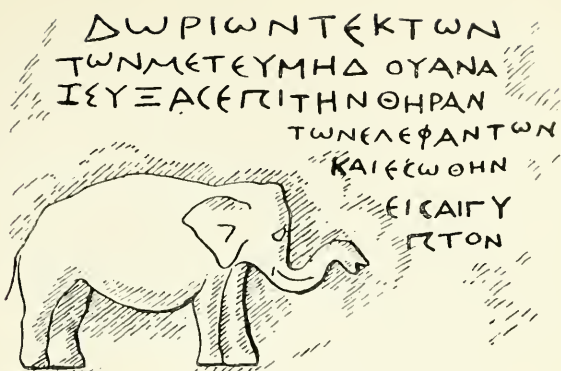 ΔωΡΙωΝ ΤΕΚΤωΝ
ΤωΝΜΕΤΕΥΜΗΔ ΟΥΑΝΑ
ΙΕΥΞΑϹΕΠΙΤΗΝ ΘΗΡΑΝ
ΤωΝΕΛΕΦΑΝΤωΝ
ΚΑΙΕϹωΘΗΝ
ΕΙϹΑΙΓΥ
ΠΤΟΝ